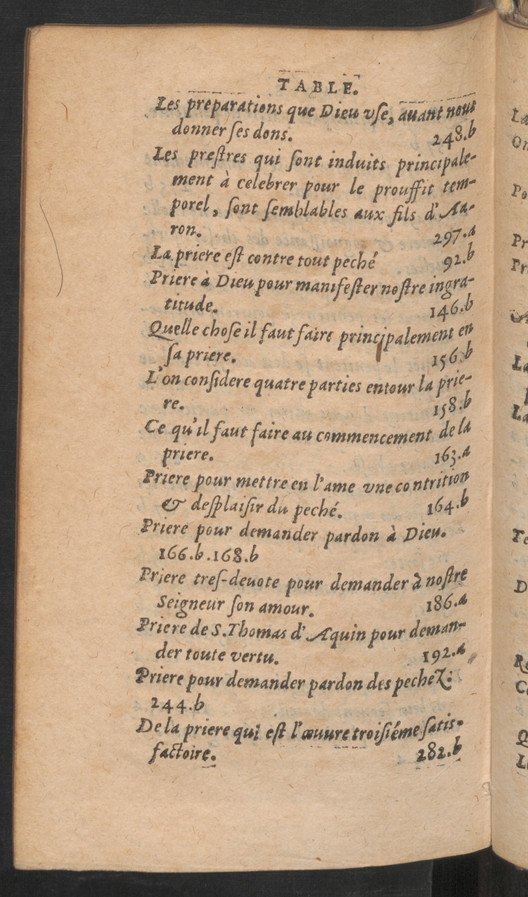 TABLE.
Les preparations que Dieu vſe, auant nous
donner ſes dons. 248.b
Les preſtres qui ſont induits principale-
ment à celebrer pour le prouffit tem-
porel, ſont ſemblables aux fils d'Aa-
ron. 297.a
La priere eſt contre tout peché 92.b
Priere à Dieu pour manifeſter noſtre ingra-
titude. 146.b
Quelle choſe il faut faire principalement en
ſa priere. 156.b
L'on conſidere quatre parties entour la prie-
re. 158.b
Ce qu'il faut faire au commencement de la
priere. 163.a
Priere pour mettre en l'ame vne contrition
& deſplaiſir du peché. 164.b
Priere pour demander pardon à Dieu.
166.b.168.b
Priere treſ-deuote pour demander à noſtre
Seigneur ſon amour. 186.a
Priere de S. Thomas d'Aquin pour deman-
der toute vertu. 192.a
Priere pour demander pardon des pechez:
244.b
De la priere qui eſt l'œuure troiſiéme ſatis-
factoire. 282.b